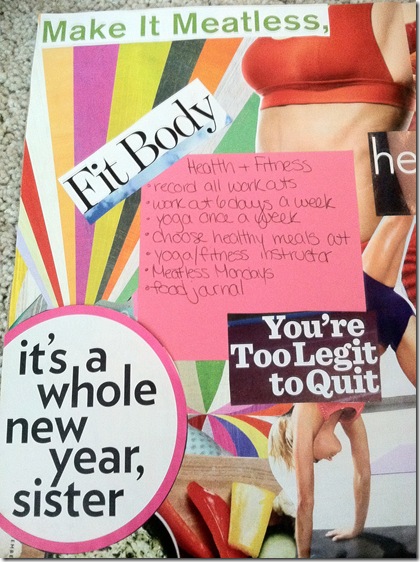 Make It Meatless,
Fit Body
he
Health + Fitness
• record all workouts
• work out 6 days a week
• yoga once a week
• choose healthy meals out
• yoga/fitness instructor
• Meatless Mondays
• food journal
You're
Too Legit
to Quit
it's a
whole
new
year,
sister